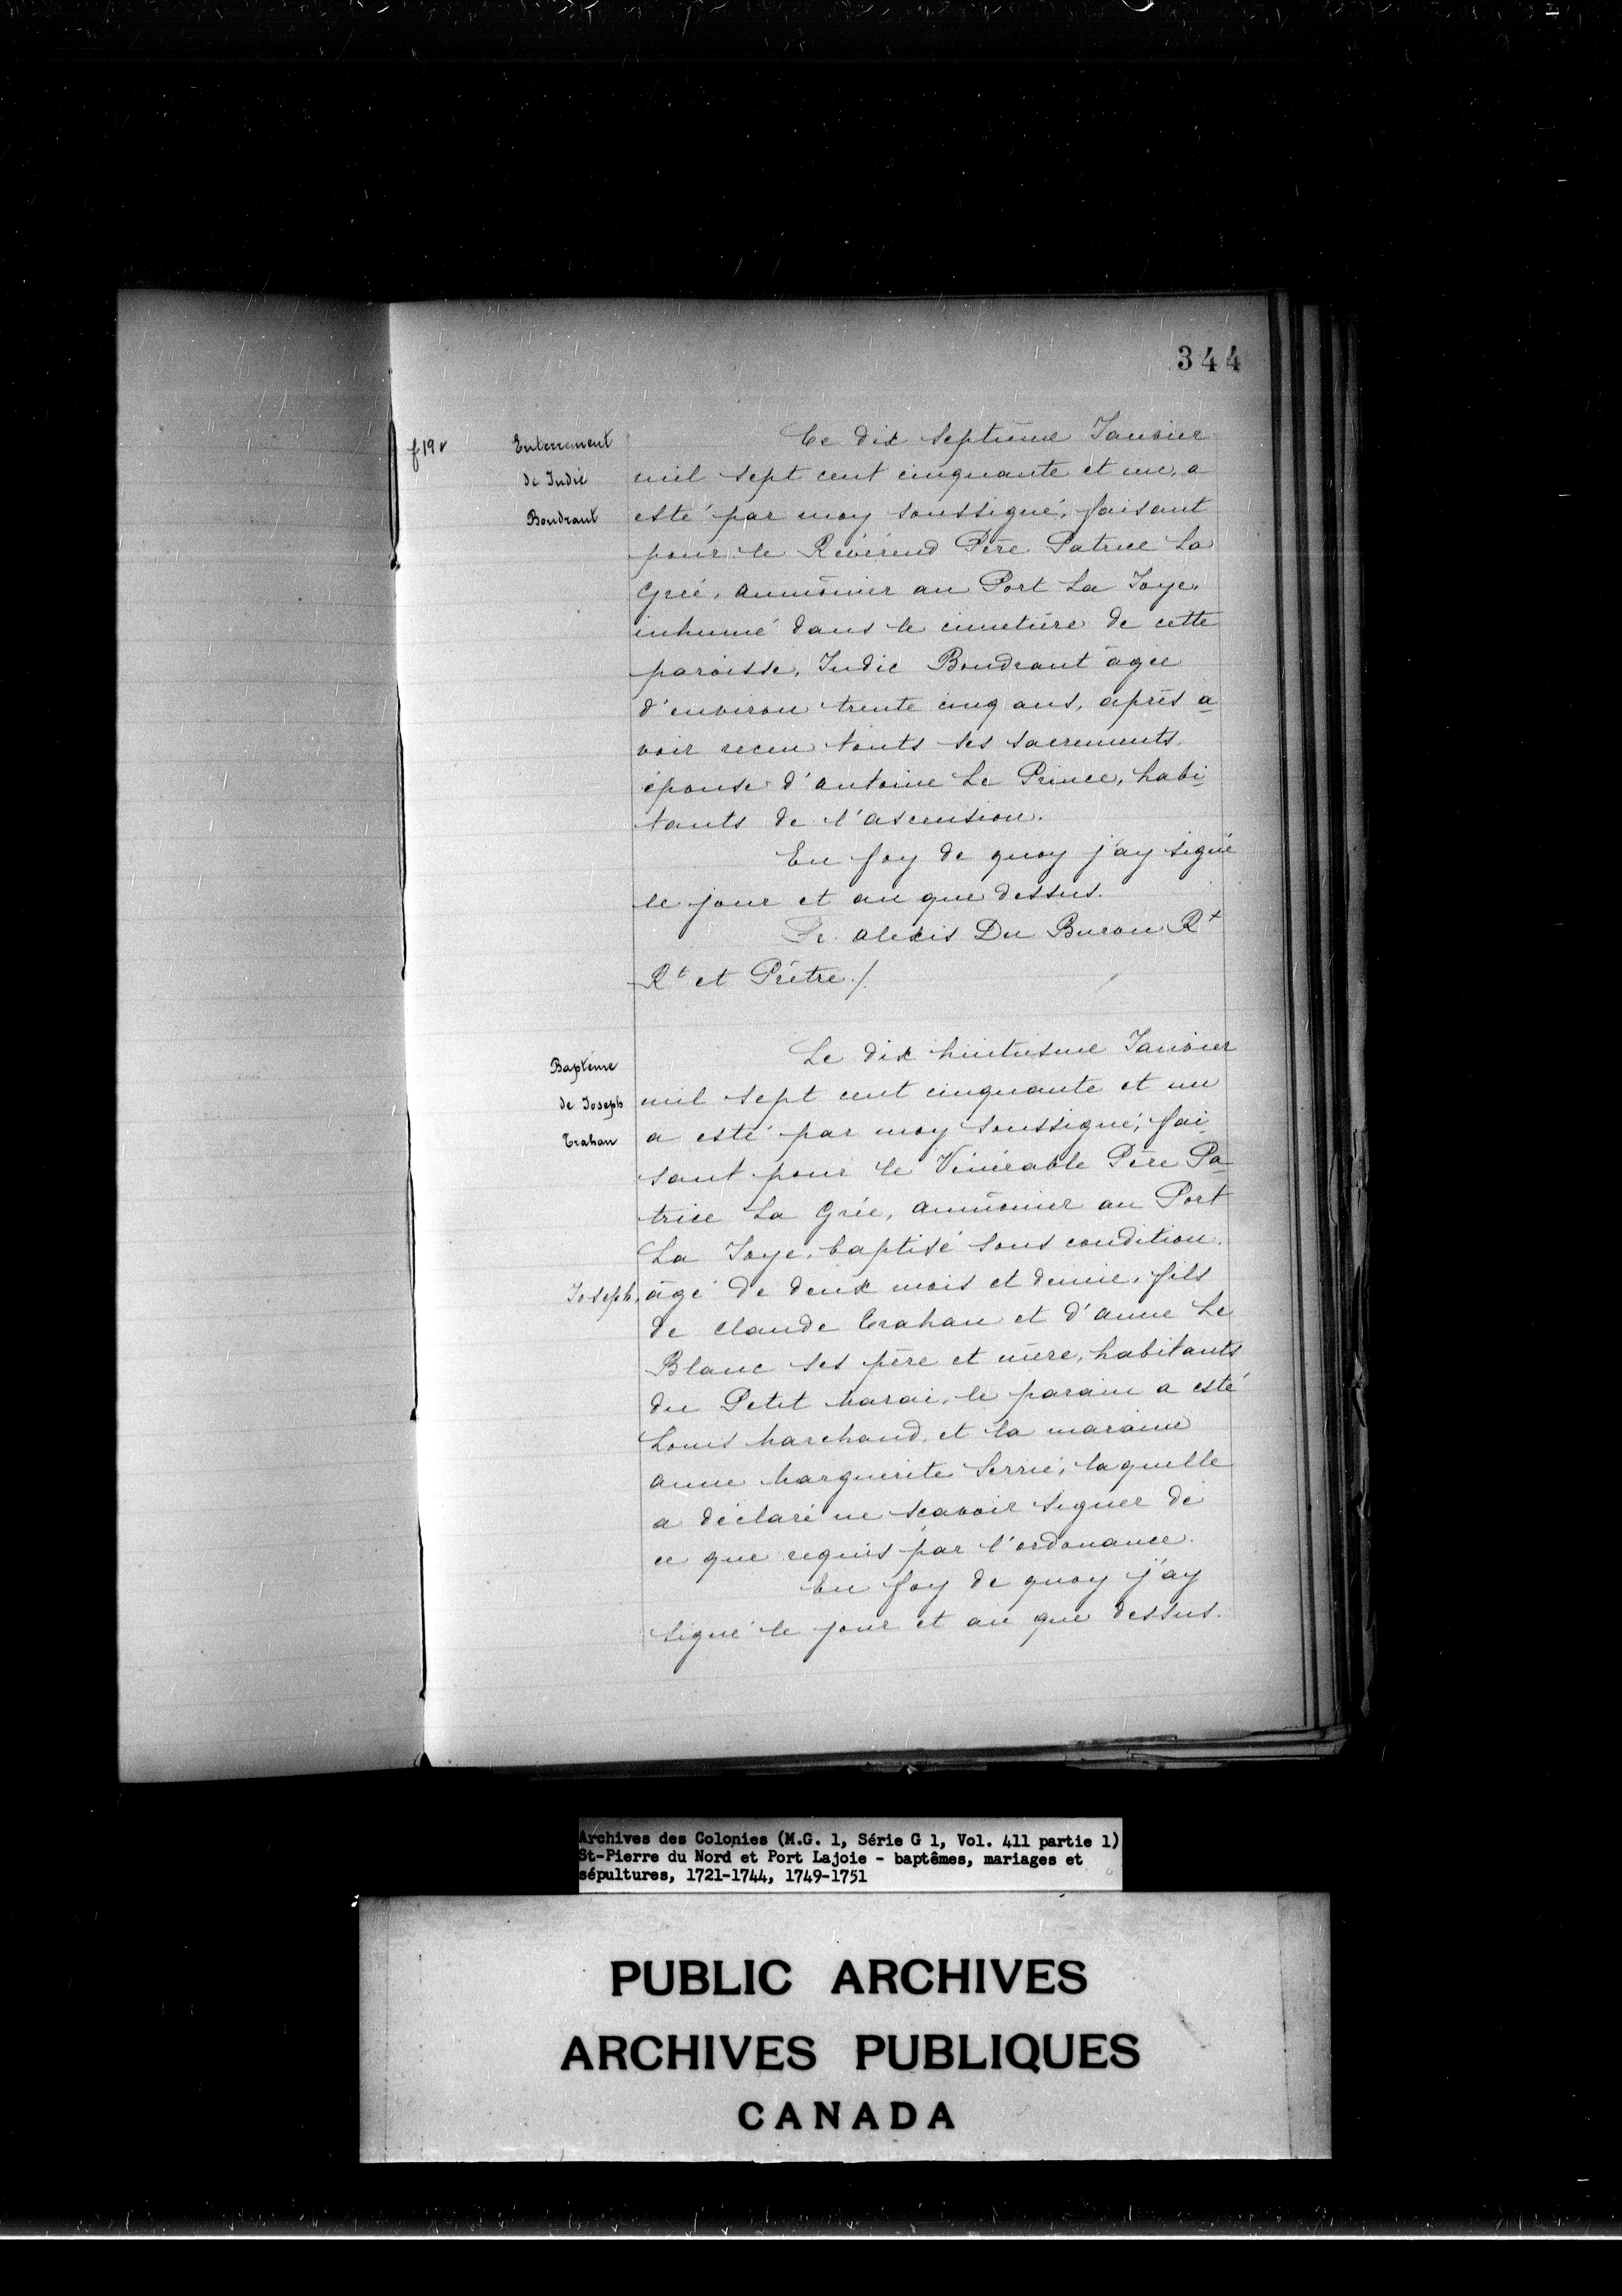 344
f 19 v
Enterrement
de Judic
Boudraut
Ce dix septième Janvier
mil sept cent cinquante et un, a
esté par moy soussigné, faisant
pour le Révérend Père Patrice La
Grée, aumônier au Port La Joye,
inhumé dans le cimetière de cette
paroisse, Judic Boudraut âgée
d'environ trente cinq ans, après a
voir receu touts ses sacrements.
épouse d'Antoine Le Prince, habi
tants de l'ascension.
En foy de quoy j'ay signé
le jour et an que dessus.
Fr. Alexis Du Buron Rt
Rt et Prêtre ./.
Baptême
de Joseph
Trahan
Le dix huitiesme Janvier
mil sept cent cinquante et un
a esté par moy soussigné, fai
sant pour le Vénérable Père Pa
trice La Grée, aumônier au Port
La Joye, baptisé sous condition.
Joseph, âgé de deux mois et demie, fils
de Claude Trahan et d'anne Le
Blanc ses père et mère, habitants
du Petit Marai, le parain a esté
Louis Marchand, et la maraine
anne Marguerite Serrié, laquelle
a déclaré ne scavoir signer de
ce que requis par l'ordonance.
En foy de quoy j'ay
signé le jour et an que dessus.
Archives des Colonies (M.G. 1, Série G 1, Vol. 411 partie 1)
St-Pierre du Nord et Port Lajoie - baptêmes, mariages et
sépultures, 1721-1744, 1749-1751
PUBLIC ARCHIVES
ARCHIVES PUBLIQUES
CANADA